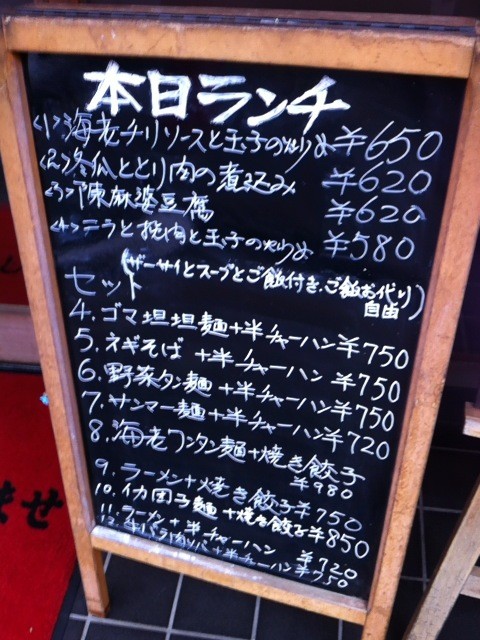 本日ランチ
<1>海老チリソースと玉子の炒め ¥650
<2>冬瓜ととり肉の煮込み ¥620
<3>陳麻婆豆腐 ¥620
<4>ニラと挽肉と玉子の炒め ¥580
(ザーサイとスープとご飯付き、ご飯お代り自由)
セット
4. ゴマ坦坦麺+半チャーハン ¥750
5. ネギそば +半チャーハン ¥750
6. 野菜タン麺+半チャーハン ¥750
7. サンマー麺+半チャーハン ¥720
8. 海老ワンタン麺+焼き餃子
¥980
9. ラーメン+焼き餃子 ¥750
10. イカ団子麺+焼き餃子 ¥850
11. ラーメン+半チャーハン ¥720
12. +半チャーハン ¥750
ませ